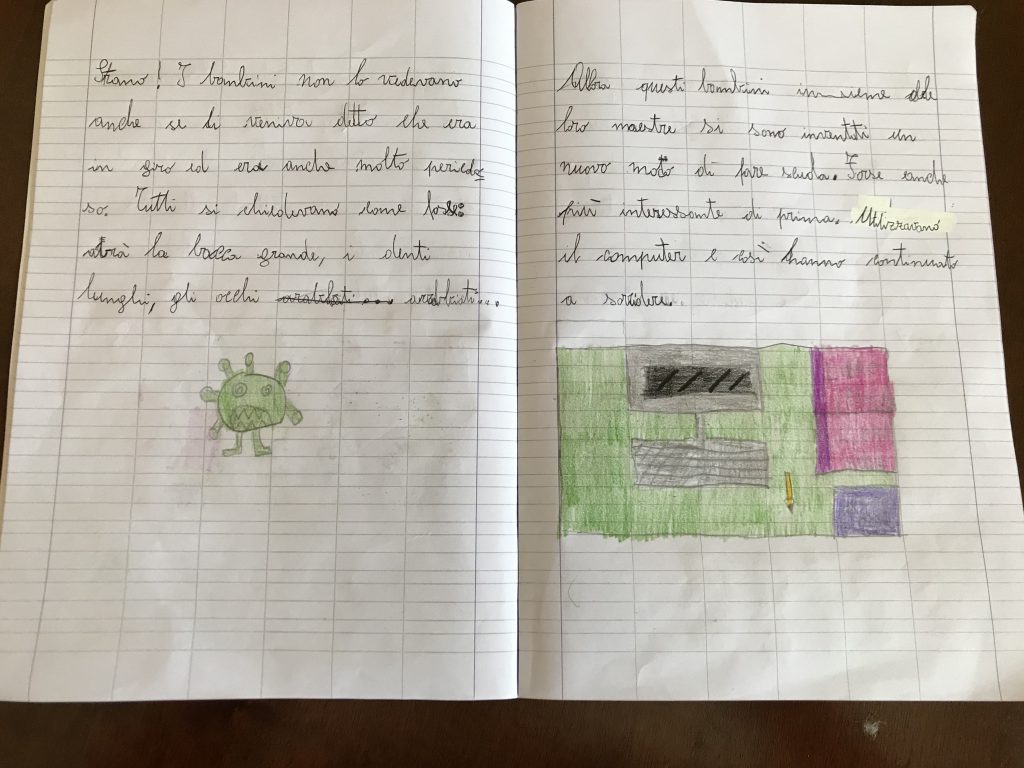 Strano! I bambini non lo vedevano
anche se li veniva detto che era
in giro ed era anche molto pericolo-
so. Tutti si chiedevano come fosse:
avrà la bocca grande, i denti
lunghi, gli occhi arrabbiati...
Allora questi bambini insieme alle
loro maestre si sono inventati un
nuovo modo di fare scuola. Forse anche
più interessante di prima. Utilizzavano
il computer e così hanno continuato
a sorridere.